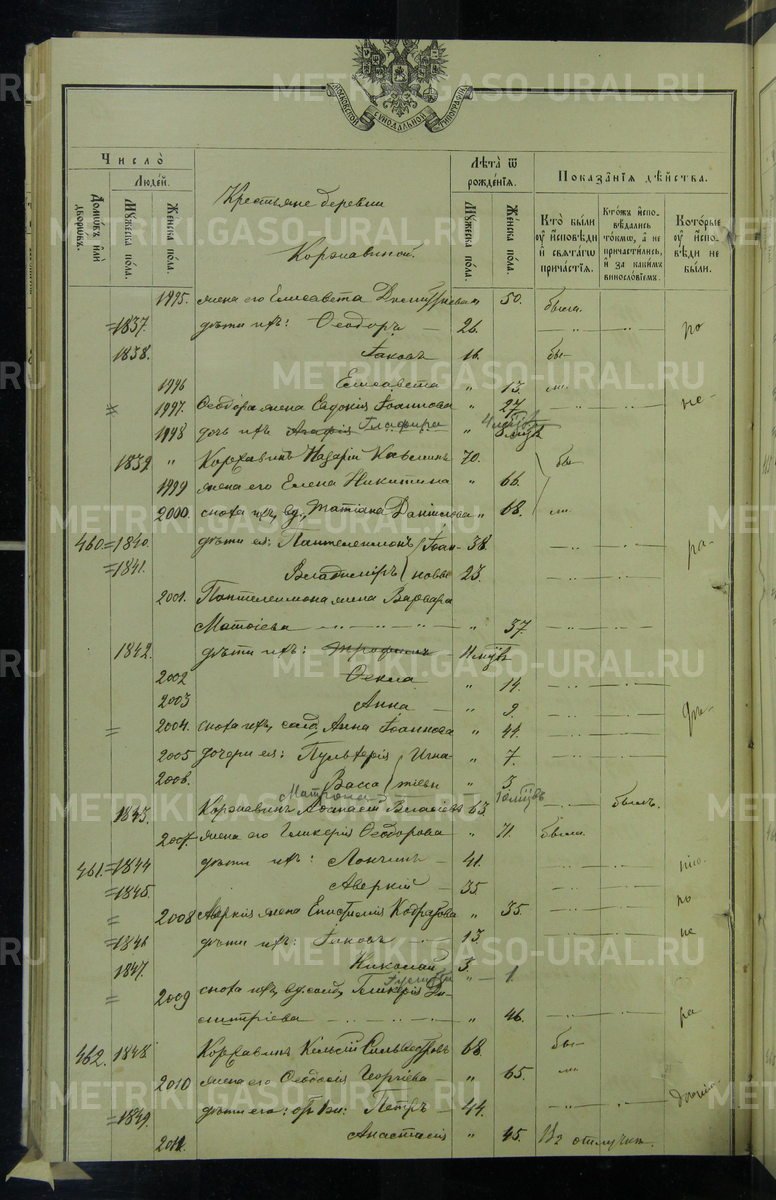 METRIKI.GASO-URAL.RU
МОСКОВСКОЙ СѴНОДАЛЬНОЙ ТИПОГРАФІИ
Число̀
Людей.
Домѡвъ и҆лѝ дворѡвъ.
Мꙋжеска пола.
Женска пола.
Крестьяне деревни
Коржавиной.
Лѣта̀ ѿ рожденїѧ.
Мꙋжеска пола.
Женска пола.
Показа̑нїѧ дѣйства.
Кто̀ бы́ли ᲂу҆ и҆сповѣди и҆ свѧтагѡ причастїѧ.
Ктожъ и҆сповѣдались то́кмѡ, а не причастились, и҆ за какимъ винословїемъ.
Которые ᲂу҆ и҆сповѣди не были.
1995. жена его Елисавета 50. была.
=1837. дѣти ихъ: Ѳеодоръ — 26. по
1838. Іаковъ 16. бы-
1996 Елисавета " 13. ли.
= 1997. Ѳеодора жена Евдокія Іоаннова " 27 не-
1998 дочь ихъ Агафія Глафира "
1839. " Коржавинъ Назарій 70. бы
1999 жена его Елена Никитина " 66.
2000. сноха ихъ, вд., Татіана Даніилова " 68. ли.
460.=1840. дѣти ея: Пантелеимонъ Іоан- 38. ра-
=1841. Владиміръ новы 23.
2001. Пантелеимона жена Варвара
Матѳіева " 37.
1842. дѣти ихъ: Трофимъ —
2002 Ѳекла " 14.
2003 Анна — " 9.
= 2004. сноха ихъ, солд. Анна Іоаннова " 44.
2005 дочери ея: Пульхерія Игна- " 7.
2006. Васса тіевы " 3
Матрона
1843. Коржавинъ Аѳанасій Власіевъ 63 былъ.
2007. жена его Гликерія Ѳеодорова " 71. была.
461.=1844 дѣти ихъ: Лонгинъ — 41.
=1845. Аверкій — 35 по
= 2008 Аверкія жена Епистимія " 35. не
=1846 дѣти ихъ: Іаковъ 13.
1847. Николай 3.
" — 1.
= 2009 сноха ихъ, вд. солд. Гликерія Ди-
митріева " 46. ра
462. 1848. Коржавинъ Кельсій Сильвестровъ 68. бы-
2010 жена его Ѳеодосія Георгіева — " 65. ли
=1849. дѣти его: Петръ — 44.
2011. Анастасія " 45. Въ отлучкѣ.